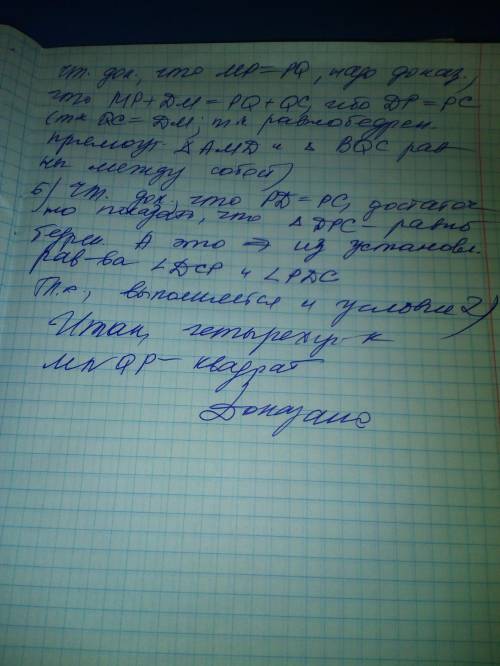 Чт. док., что MP=PQ, надо доказ.,
что MP+DM=PQ+QC, ибо DP=PC
(т.к QC=DM; т.к равнобедрен.
прямоуг. ΔAMD и ΔBQC рав-
ны между собой)
б) Чт. док., что PD=PC, достаточ-
но показать, что ΔDPC – равно
бедрен. А это ⇒ из установл.
рав-ва ∠DCP и ∠PDC
Т.к., выполняется и условие 2)
Итак, четырехуг-к
MNQP – квадрат
Доказано